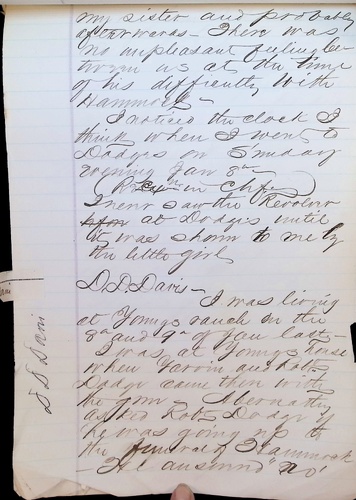 my sister and probably
afterwards - There was
no unpleasant feeling be-
tween us at the time
of his difficulty with
Hammock -
I noticed the clock I
think when I went to
Dodges on Sunday
evening Jan 8th
in Chf
I never saw the Revolver
at Dodges until
it was shown to me by
the little girl
D. D. Davis -
I was living
at Youngs ranch on the
8th and 9th of Jan last -
I was at Youngs house
when
Dodge came then with
the gun -
asked Dodge if
he was going up to
the funeral of Hammock
He answered "No"
D D Davis